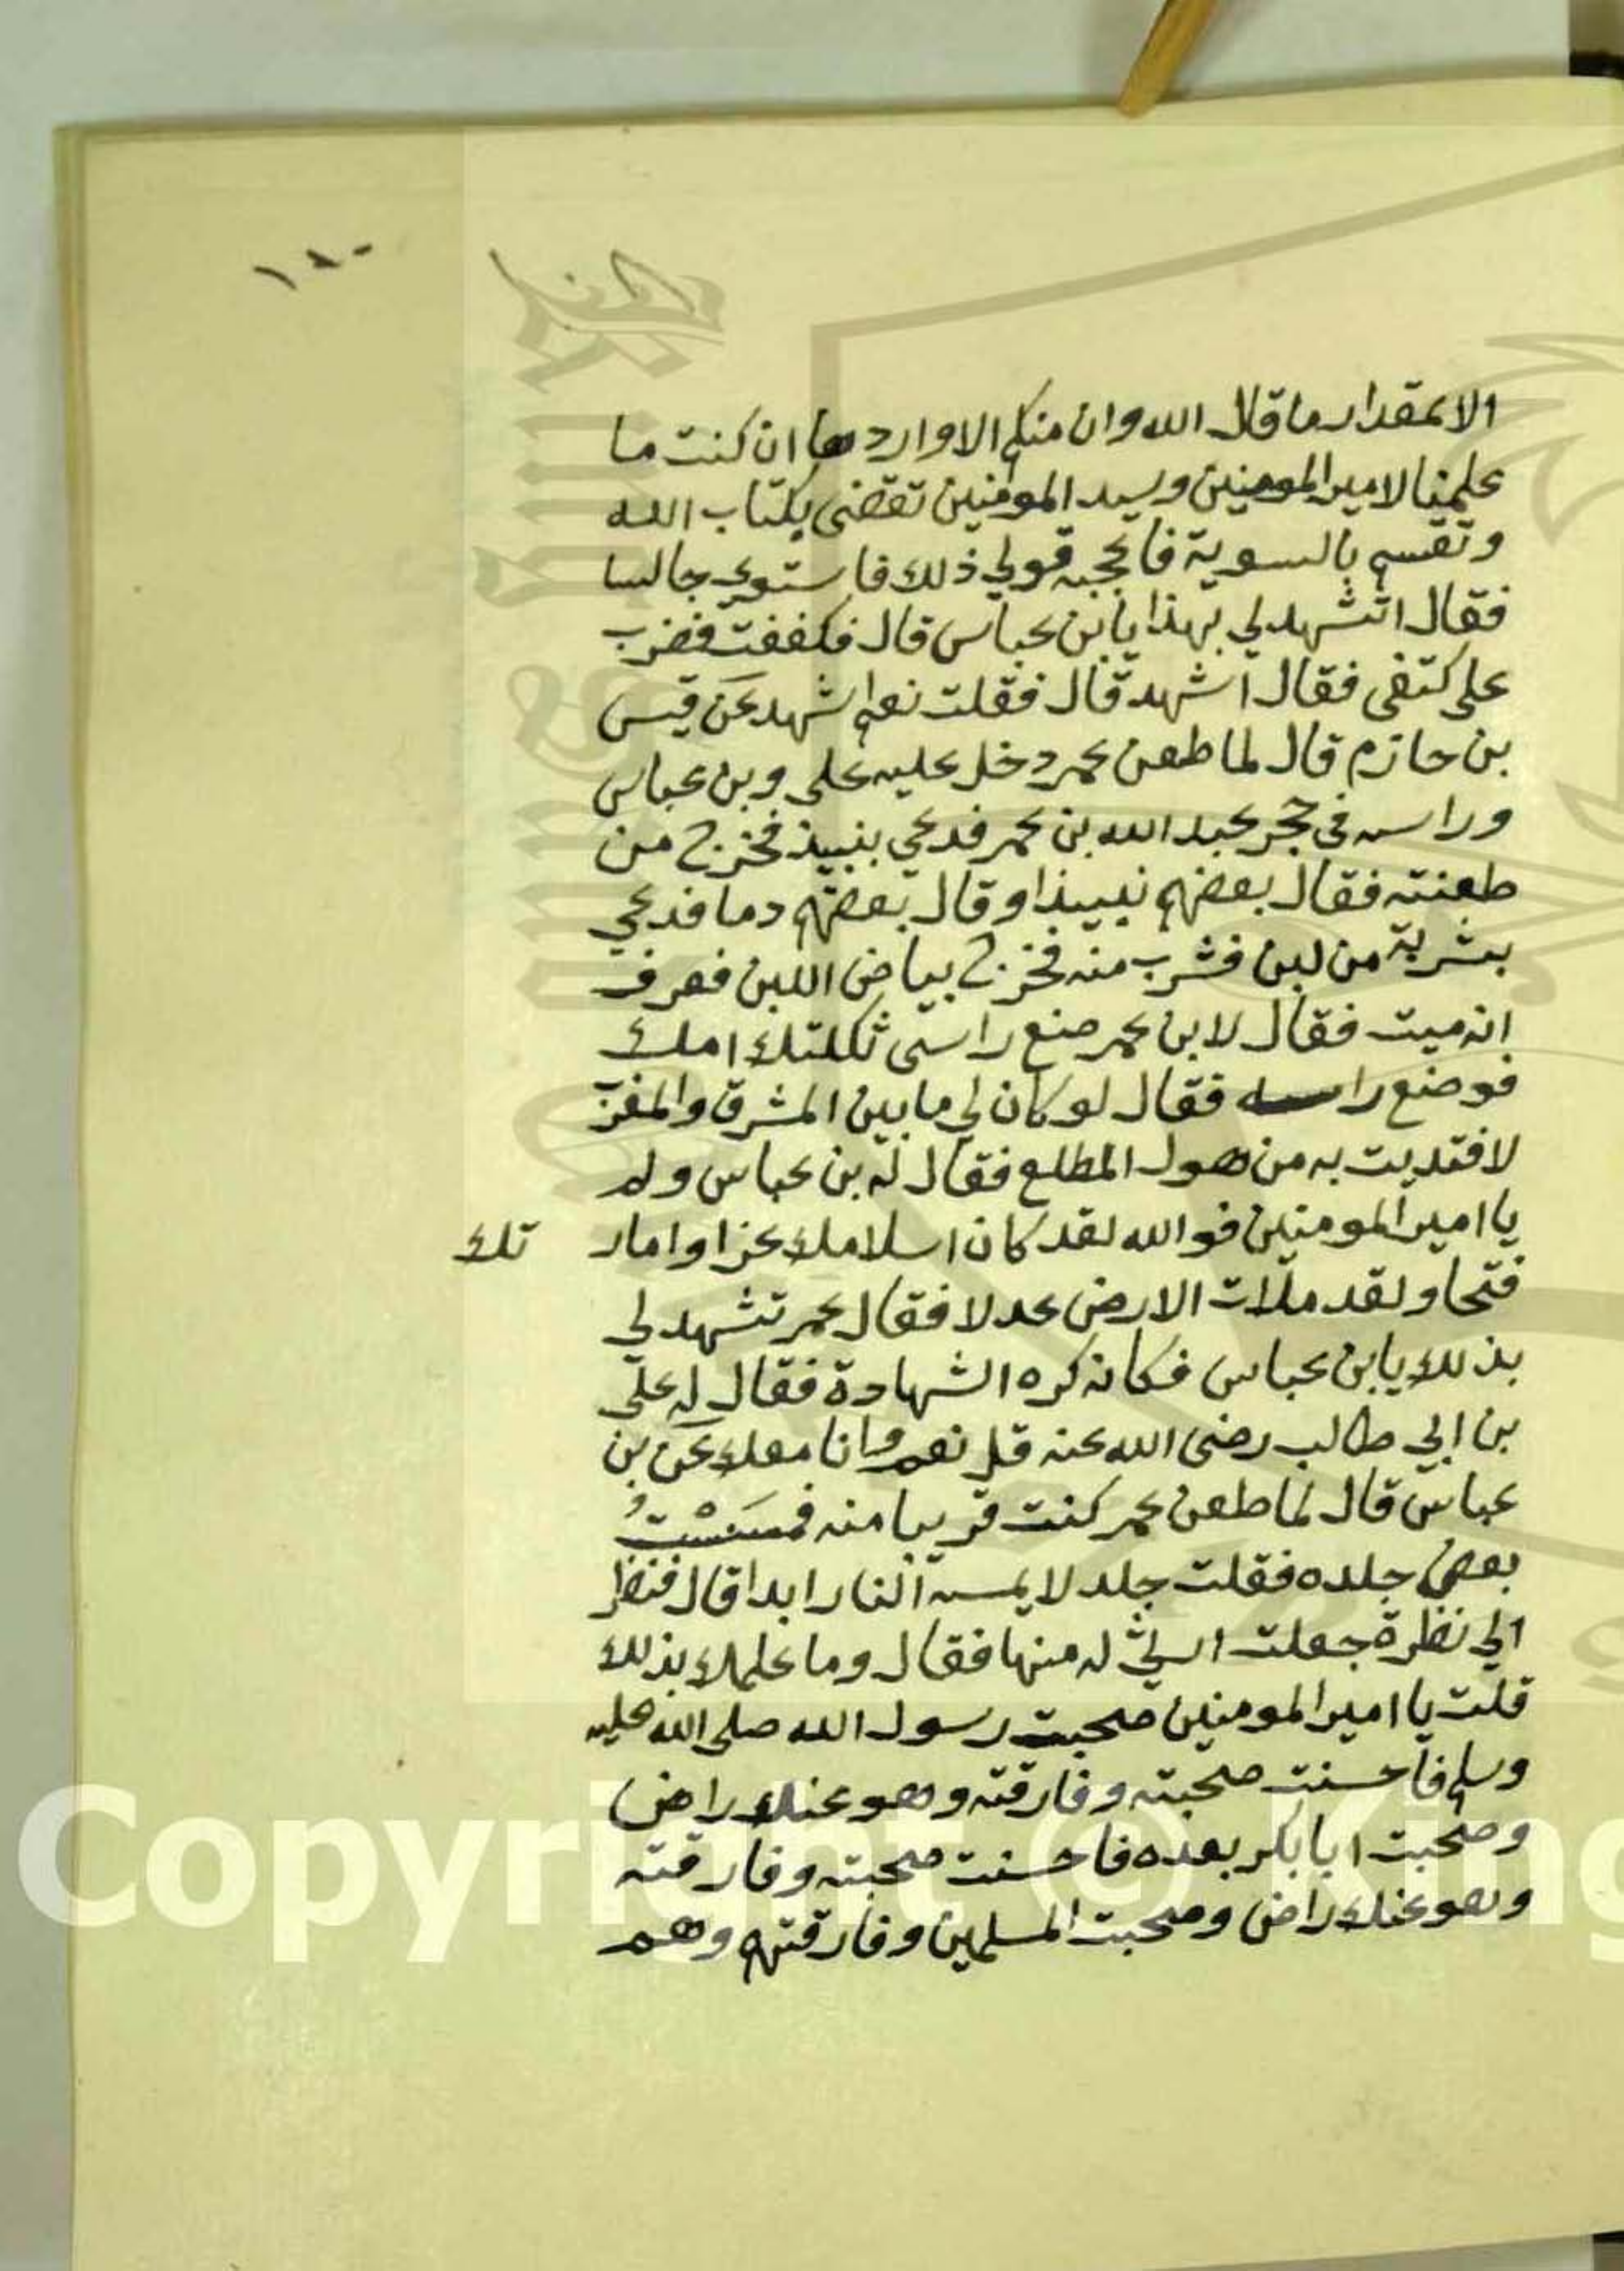 الا بمقدار ما قال الله وان منكم الا واردها ان كنت ما
علمنا لامير المومنين وسيد المومنين تقضى بكتاب الله
وتقسم بالسوية فاعجبه قولي ذلك فاستوى جالسا
فقال اتشهد لي بهذا يا بن عباس قال فكففت فضرب
على كتفى فقال اشهد قال فقلت نعم اشهد عن قيس
بن حازم قال لما طعن عمر دخل عليه على وبن عباس
وراسه في حجر عبد الله بن عمر فدعي بنبيذ فخرج من
طعنته فقال بعضهم نبيذا وقال بعضهم دما فدعي
بشربة من لبن فشرب منه فخرج بياض اللبن فعرف
انه ميت فقال لابن عمر ضع راسى ثكلتك امك
فوضع راسه فقال لو كان لي ما بين المشرق والمغرب
لافتديت به من هول المطلع فقال له بن عباس ولم
يا امير المومنين فوالله لقد كان اسلامك عزا وامار تك
فتحا ولقد ملات الارض عدلا فقال عمر تشهد لي
بذلك يابن عباس فكانه كره الشهادة فقال له على
بن ابي طالب رضى الله عنه قل نعم وانا معك عن بن
عباس قال لما طعن عمر كنت قريبا منه فمسست
بعض جلده فقلت جلد لا يمسه النار ابدا قال فنظر
الي نظرة جعلت ارثي له منها فقال وما علمك بذلك
قلت يا امير المومنين صحبت رسول الله صلى الله عليه
وسلم فاحسنت صحبته وفارقته وهو عنك راض
وصحبت ابا بكر بعده فاحسنت صحبته وفارقته
وهو عنك راض وصحبت المسلمين وفارقتهم وهم
Copyright © King